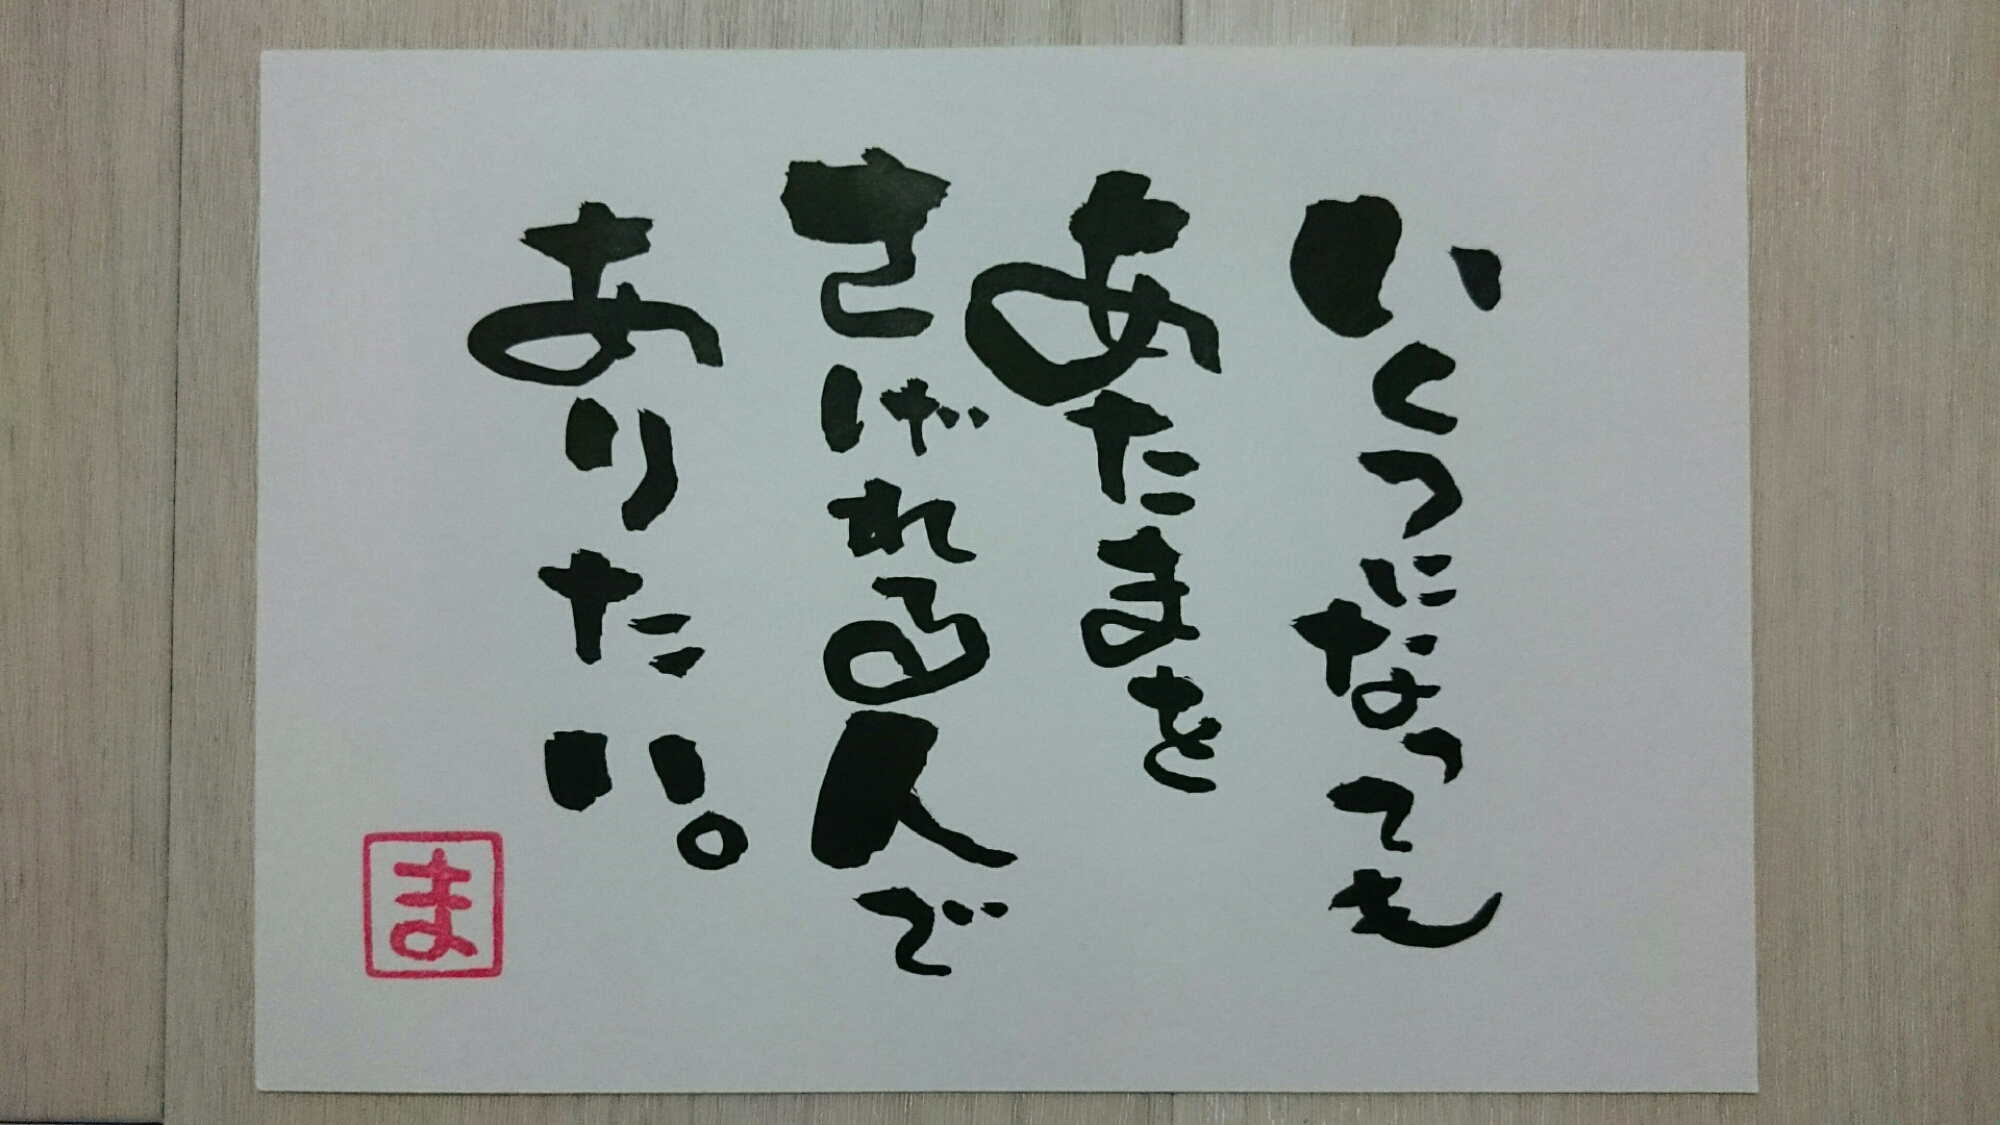 いくつになっても
あたまを
さげれる人で
ありたい。
ま